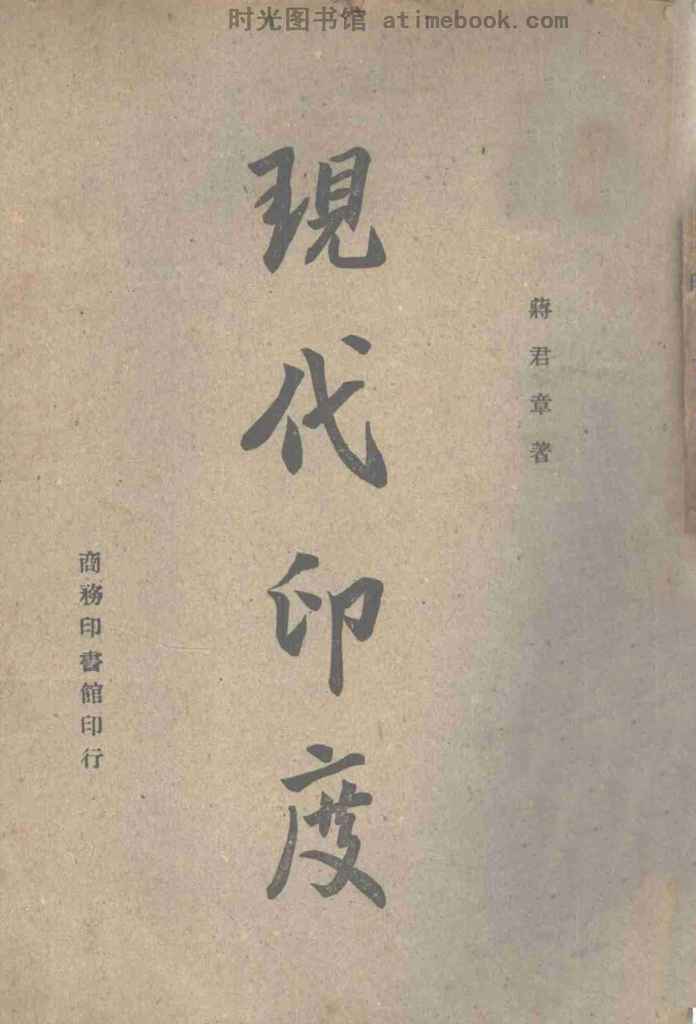 时光图书馆 atimebook.com
蔣君章著
現代印度
商務印書館印行